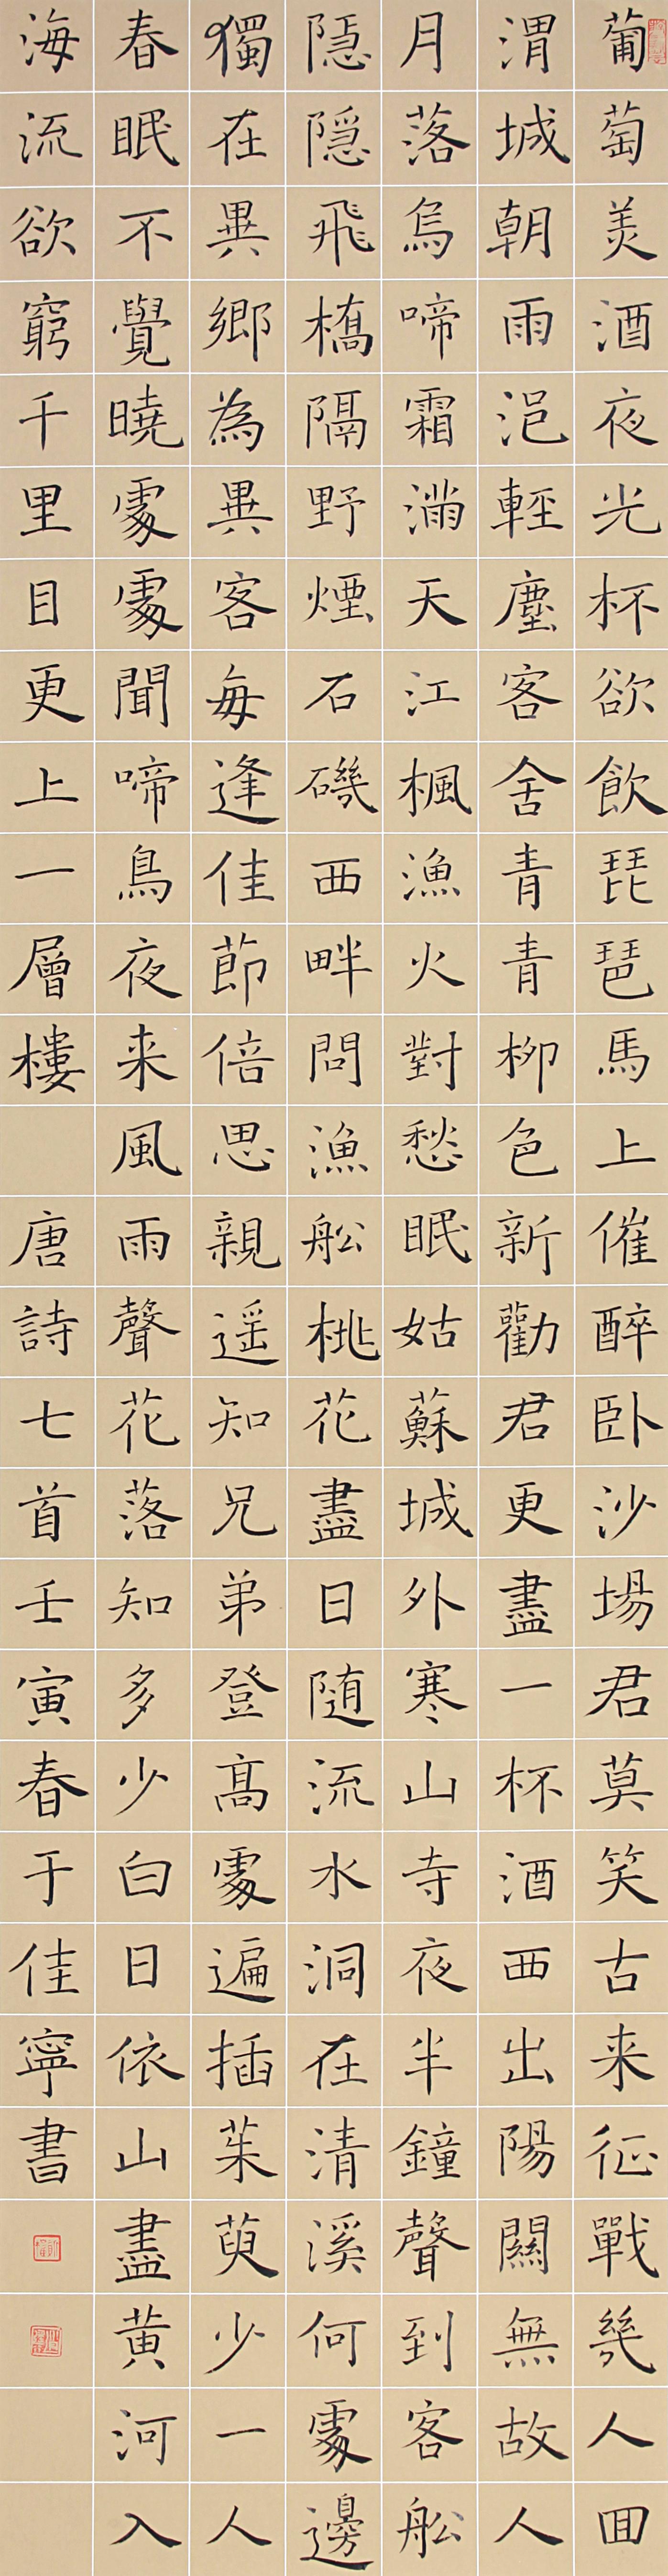 葡萄美酒夜光杯欲飲琵琶馬上催醉卧沙場君莫笑古来征戰幾人回
渭城朝雨浥輕塵客舍青青柳色新勸君更盡一杯酒西出陽關無故人
月落烏啼霜滿天江楓漁火對愁眠姑蘇城外寒山寺夜半鐘聲到客船
隱隱飛橋隔野煙石磯西畔問漁船桃花盡日随流水洞在清溪何處邊
獨在異鄉為異客每逢佳節倍思親遥知兄弟登高處遍插茱萸少一人
春眠不覺曉處處聞啼鳥夜来風雨聲花落知多少白日依山盡黄河入
海流欲窮千里目更上一層樓 唐詩七首壬寅春于佳寧書